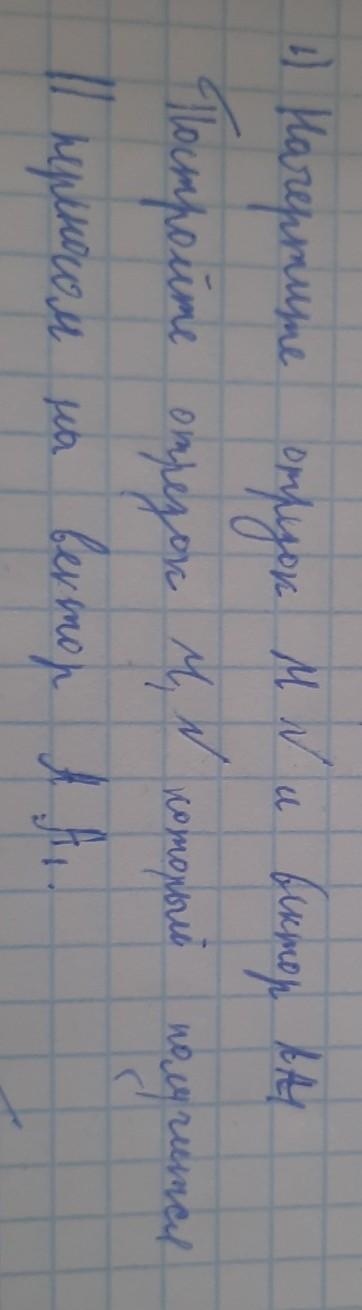 1) Начертите отрезок MN и вектор AA1
Постройте отрезок M1N который получится
|| переносом на вектор AA1.